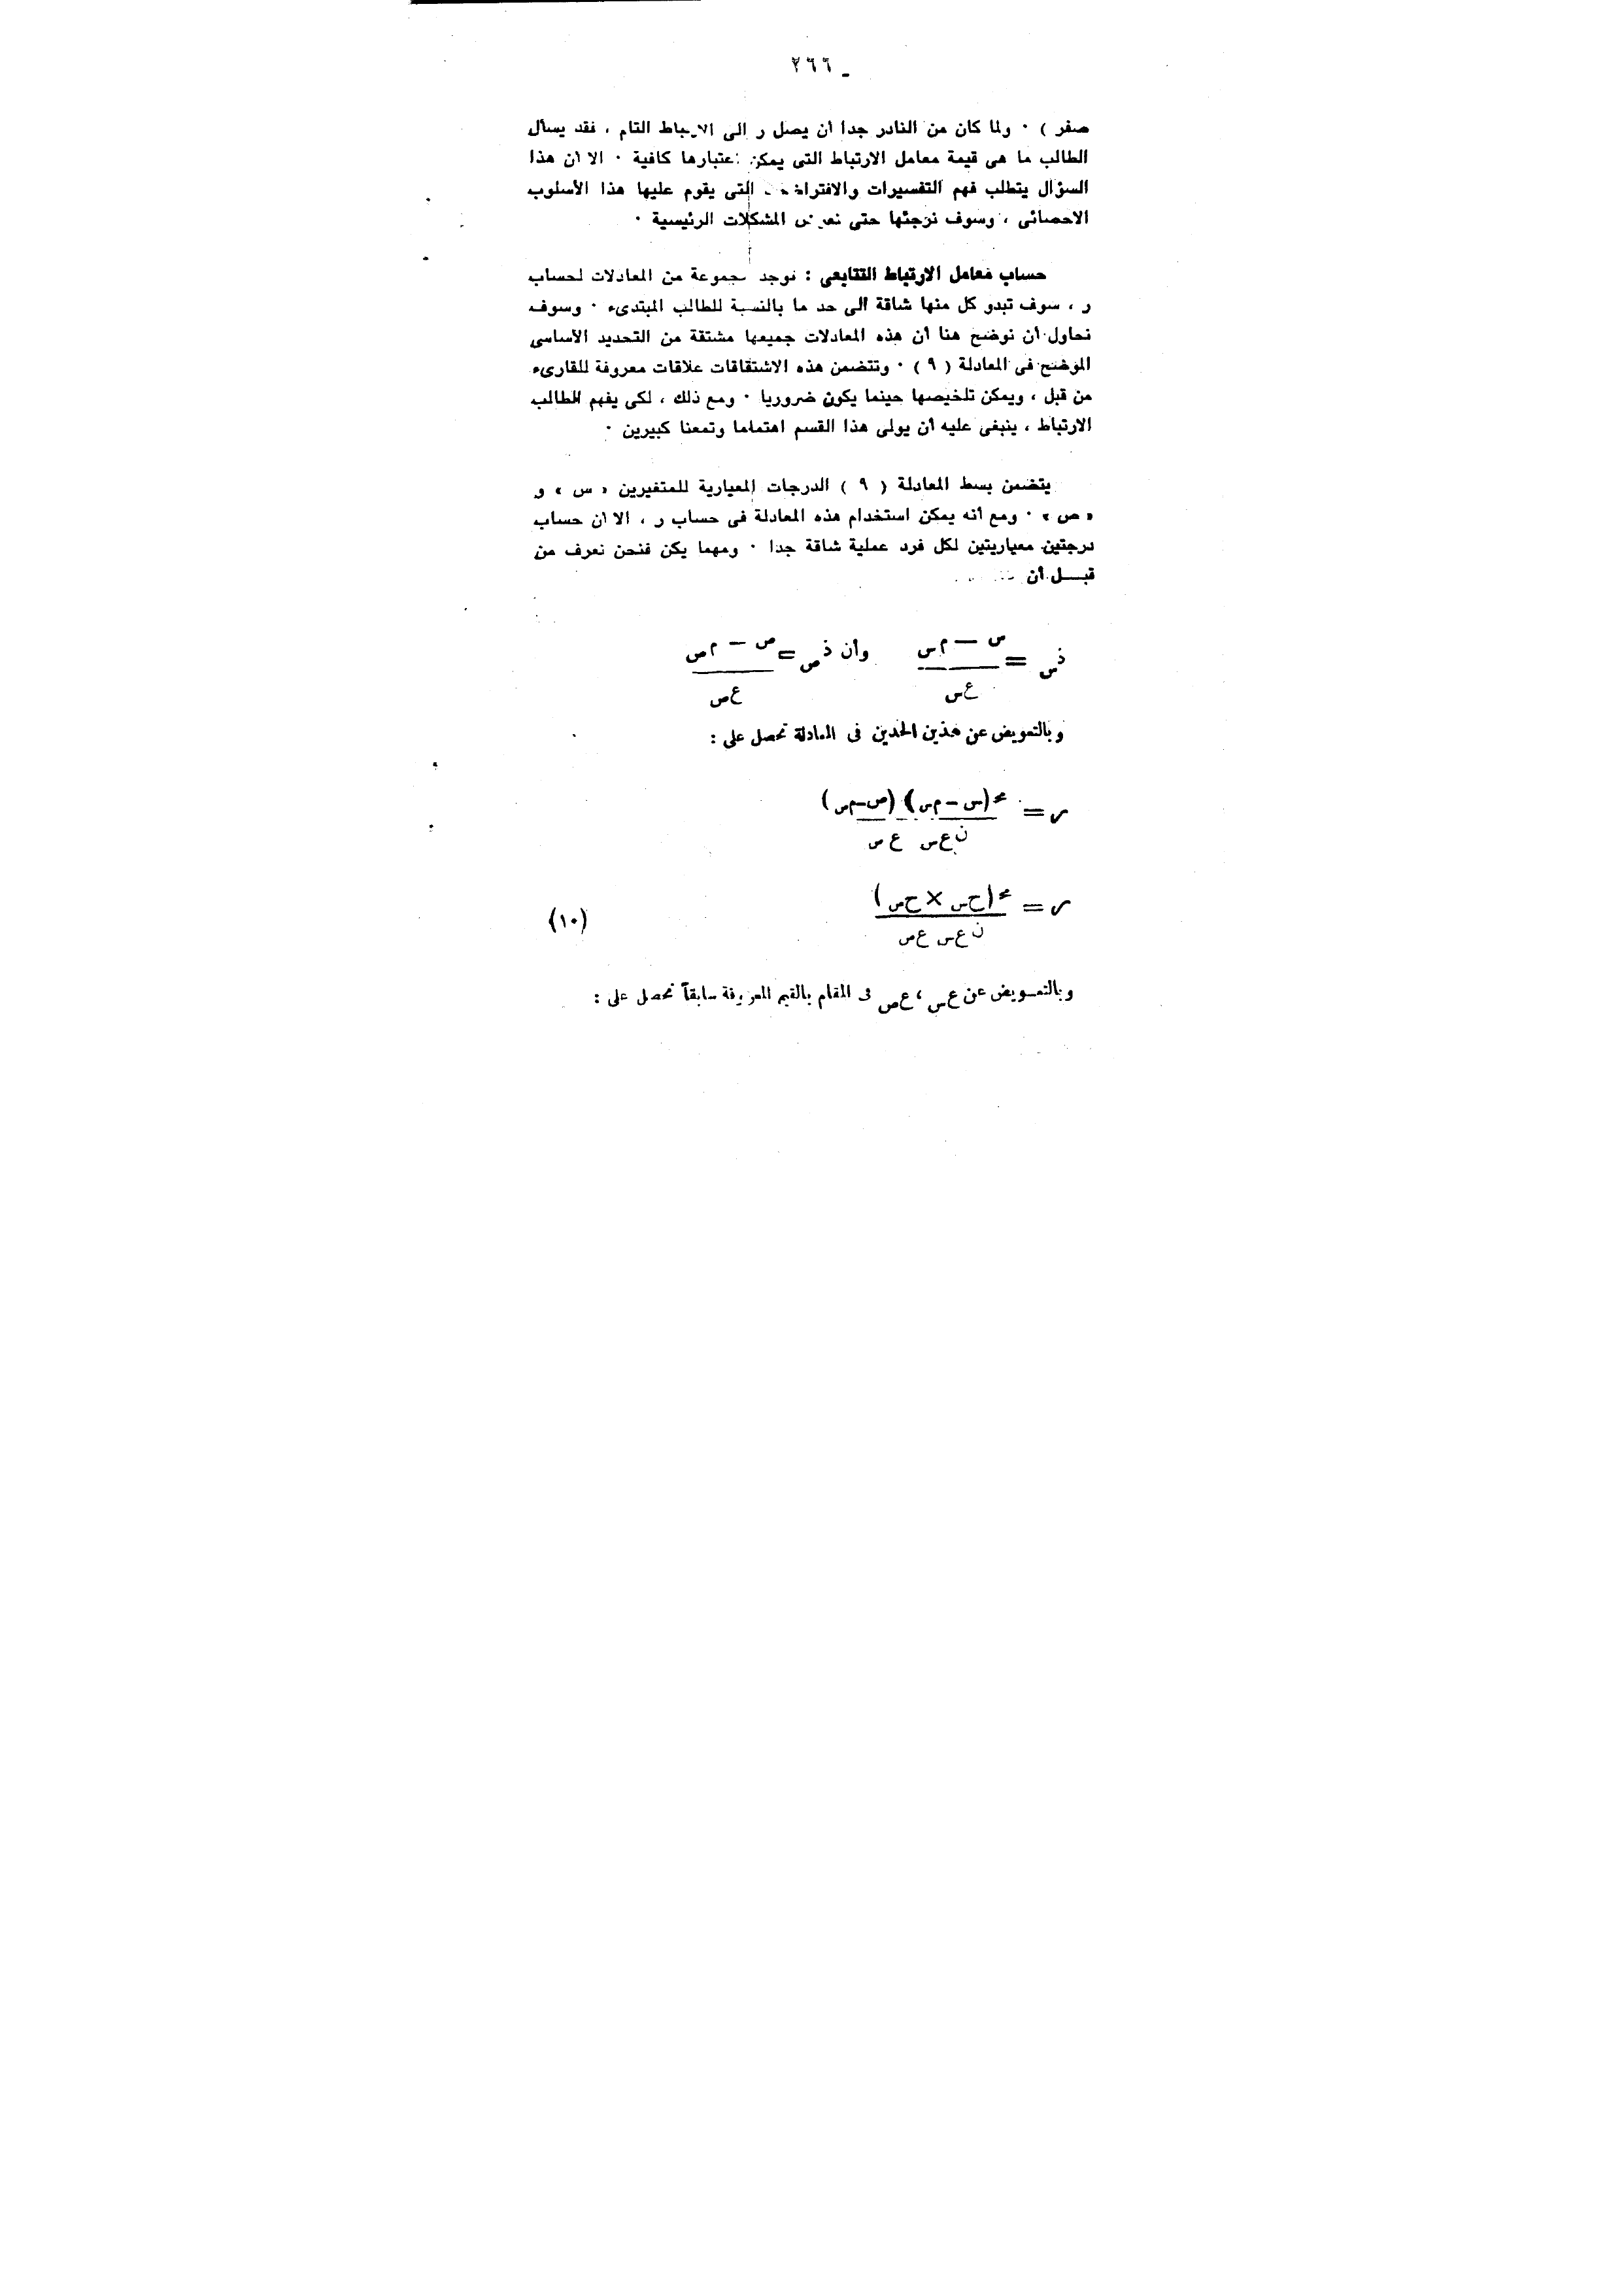 ـ ٢٦٦
صفر ) ٠ ولما كان من النادر جدا أن يصل ر الى الارتباط التام ، فقد يسأل
الطالب ما هى قيمة معامل الارتباط التى يمكن اعتبارها كافية ٠ الا أن هذا
السؤال يتطلب فهم التفسيرات والافتراضات التى يقوم عليها هذا الأسلوب
الاحصائى ، وسوف نرجئها حتى نعرض المشكلات الرئيسية ٠
حساب معامل الارتباط التتابعى : توجد مجموعة من المعادلات لحساب
ر ، سوف تبدو كل منها شاقة الى حد ما بالنسبة للطالب المبتدىء ٠ وسوف
نحاول أن نوضح هنا أن هذه المعادلات جميعها مشتقة من التحديد الأساسى
الموضح فى المعادلة ( ٩ ) ٠ وتتضمن هذه الاشتقاقات علاقات معروفة للقارىء
من قبل ، ويمكن تلخيصها حينما يكون ضروريا ٠ ومع ذلك ، لكى يفهم الطالب
الارتباط ، ينبغى عليه أن يولى هذا القسم اهتماما وتمعنا كبيرين ٠
يتضمن بسط المعادلة ( ٩ ) الدرجات المعيارية للمتغيرين « س » و
« ص » ٠ ومع أنه يمكن استخدام هذه المعادلة فى حساب ر ، الا أن حساب
درجتين معياريتين لكل فرد عملية شاقة جدا ٠ ومهما يكن فنحن نعرف من
قبـــل أن
ذس = س — مس وأن ذص = ص — مص
عس عص
وبالتعويض عن هذين الحدين فى المعادلة نحصل على :
ر = مجـ (س – مس) (ص – مص)
ن عس عص
ر = مجـ (حس × حص)
(١٠)
ن عس عص
وبالتعـويض عن عس ، عص فى المقام بالقيم المعروفة سابقاً نحصل على :